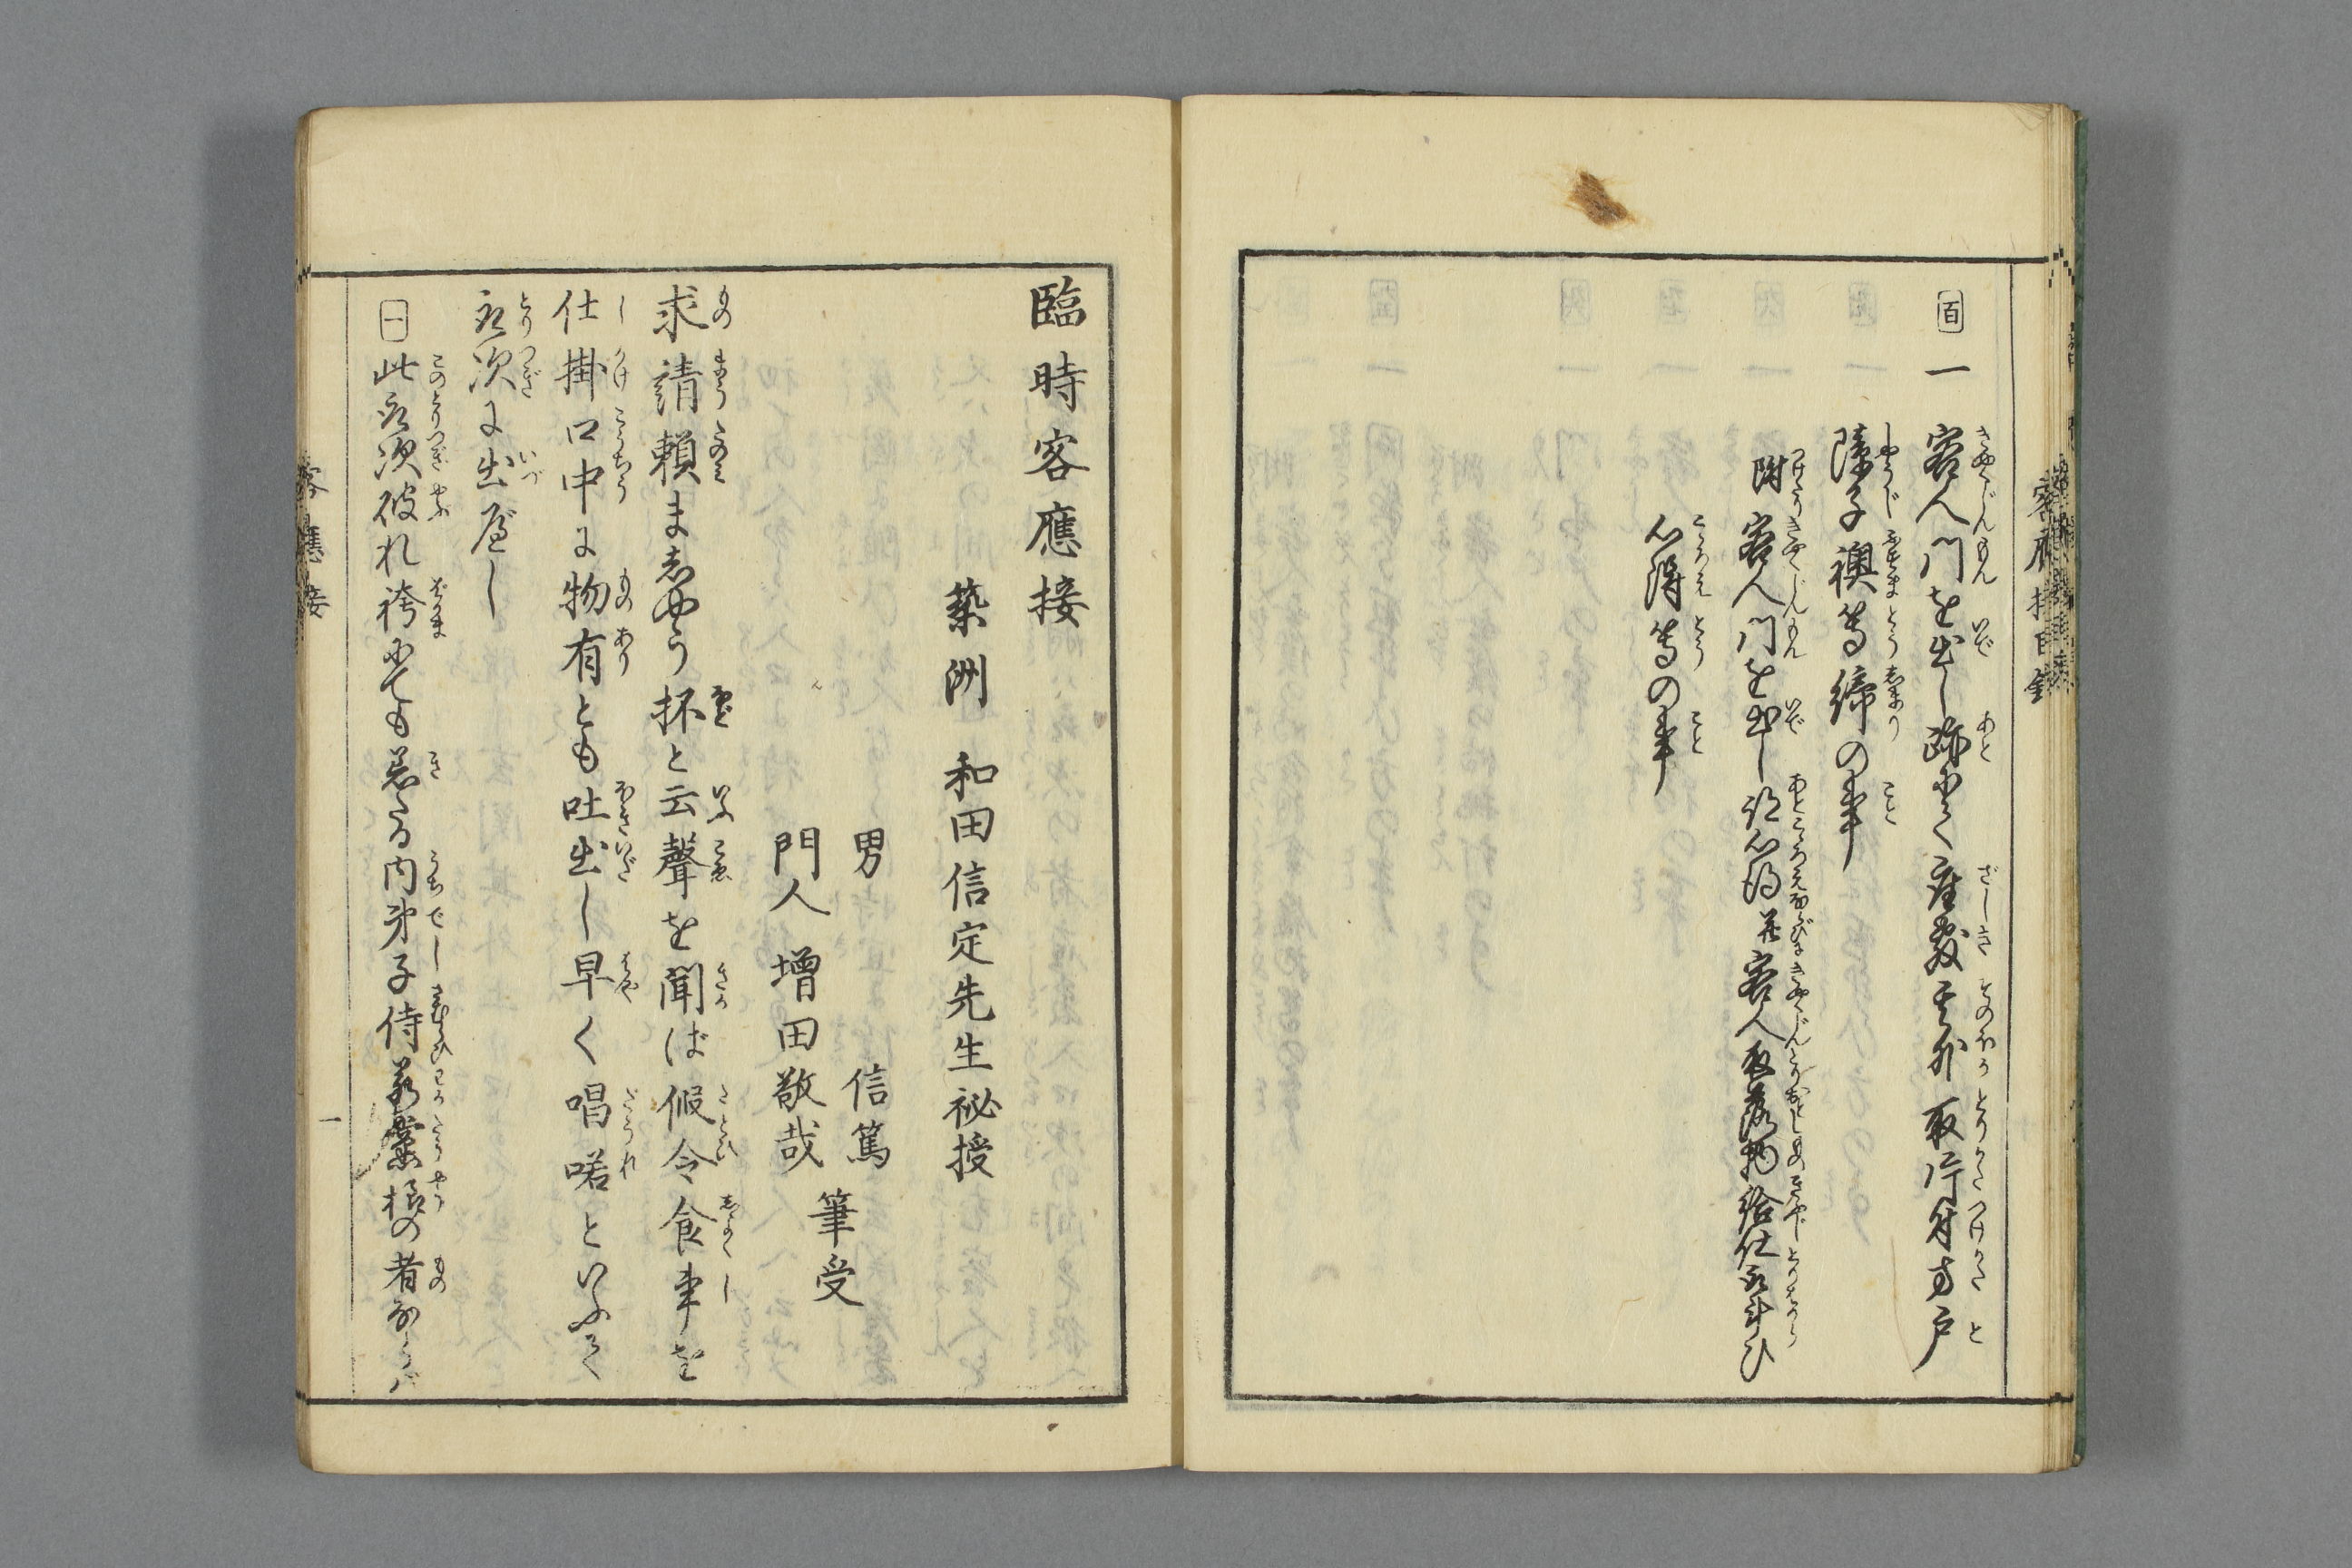 百 一 客人門を出し跡にて座敷其外取片付方戸
障子襖等締の事
附 客人門を出し跡心得並客人取落物給仕取斗ひ
心得等の事
臨時客應接
築洲 和田信定先生祕授
男 信篤
門人 增田敬哉
筆受
求請頼ましやう抔と云聲を聞ば假令食事を
仕掛口中に物有とも吐出し早く唱喏といふて
取次に出べし
一 此取次破れ袴にても着たる内弟子侍若黨様の者ならバ
客應接
一